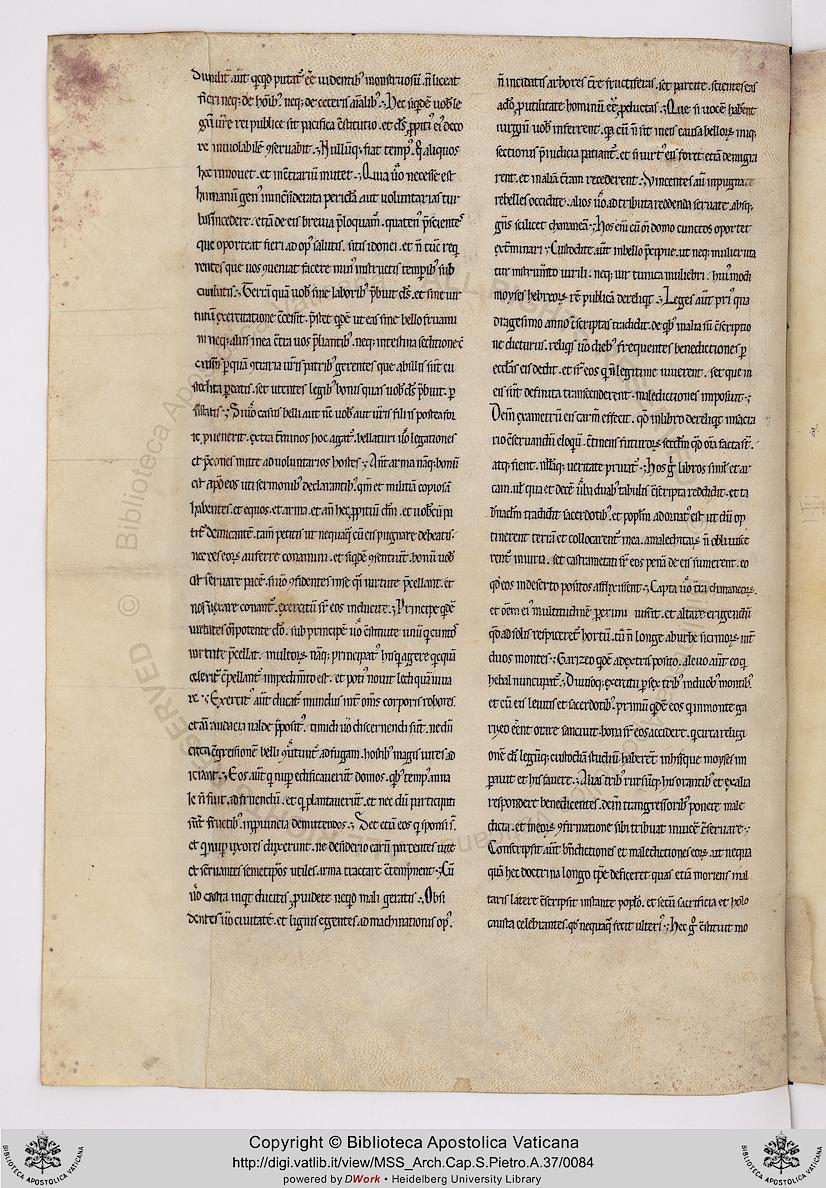 Similit̃ aũt qcqd putat̃ eẽ uidentibꝰ monstruosũ . ñ liceat
fieri neq; de hoĩbꝰ neq; de ceteris aĩalibꝰ . Hec siqdẽ uob̃ le
gũ ur̃e rei publice sit pacifica c̃stitutio . et d̃s ꝓpitiꝰ ei deco
re inuiolabilẽ ꝯseruabit . Nullũq; fiat tempꝰ qd̃ aliquos
hec innouet . et in c̃trariũ mutet . Quia u̾o necesse est
humanũ genꝰ in incñsiderata pericl̃a aut uoluntarias tur
bas incedere . etiã de eis breuia p̃loquam̃ . quatenꝰ p̃scientes
que oporteat fieri ad opꝰ salutis . sitis idonei . et ñ tũc req
rentes que uos ꝯueniat facere minꝰ instructis temporibꝰ sub
eueniatis . Terrã quã uob̃ sine laboribꝰ p̃buit d̃s . et sine uir
tutũ exercitatione c̃cessit . p̃stet qdẽ ut eã sine bello fruami
ni neq; aliis in ea c̃tra uos p̃liantibꝰ . neq; intestina seditione
p quã ꝯtraria uris patribꝰ gerentes que ab illis sũt cu
stodita pdatis . set utentes legibꝰ bonis quas uob̃ d̃s p̃buit . p
sistatis . Si u̾o casus belli aut nc̃ uob̃ aut uris filiis postea for
te ꝓuenerit . extra t̃minos hoc agat̃ . bellaturi u̾o legationes
et p̃cones mitte ad uoluntarios hostes . Ante arma nãq; bonũ
est apd̾ eos uti sermonibꝰ declarantibꝰ . qm̃ et militiã copiosã
habentes . et equos . et arma . et añ hec ꝓpitiũ d̃m . et uob̃cũ pa
rit̃ dimicantẽ . tam̃ petitis ut nequaq̃ cũ eis pugnare debeatis
nec res eor̃ auferre conamini . et siqdẽ ꝯsentiũt . bonũ uob̃
est seruare pacẽ . si u̾o ꝯfidentes in se qi uirtute p̃cellant . et
nos iurare conant̃ . exercitũ sr̃ eos inducite . Principe qdẽ
utentes om̃ipotente d̃o . sub principẽ u̾o c̃stituite unũ q cunctos
uirtute p̃cellat . multor̃ nãq; principatꝰ his q agere qcquã
celerit̃ c̃pellant̃ impedim̃to est . et potiꝰ nouit ledi quã iuua
re . Exercitꝰ aũt ducat̃ mundus int̃ om̃s corporis robore
et aĩi audacia ualde p̃positꝰ . timidi u̾o discernendi sũt . ne dũ
circa c̃gressionẽ belli ꝯuertunt̃ ad fugam . hostibꝰ magis uires ad
iciant . Eos aũt q nup edificauerũt domos . qbꝰ tempꝰ anna
le ñ fuit . ad fruendũ . et q plantauerũt . et nec dũ participati
sũt fructibꝰ . in ꝓuincia demittendos . Set etiã eos q sponsi s̃t
et q nup uxores duxerunt . ne desiderio earũ parcentes uite
et seruantes semetip̃os utiles arma tractare c̃tempnent . Cũ
u̾o castra inqt ducitis . ꝓuidete ne qd̾ mali geratis . Obsi
dentes u̾o ciuitatẽ . et lignis egentes ad machinationis opꝰ .
ñ incidatis arbores t̃re fructiferas . set parcite . scientes eas
ad ꝓ utilitate hominũ eẽ ꝓductas . Que si uocẽ haberent
iurgiũ uob̃ inferrent . qa cũ ñ sit in eis causa bellor̃ iniq;
sectionis p̃iudicia patiant̃ . et si uirtꝰ eis foret . etiã demigra
rent . et in aliã t̃ram recederent . Vincentes aũt in pugna
rebelles occidite . alios u̾o ad tributa reddenda seruate absq;
gñs scilicet chananeã . Hos eni cũ om̃i domo cunctos oportet
ext̃minari . Custodite aũt in bello p̃cipue . ut neq; mulier uta
tur instrum̃to uirili . neq; uir tunica muliebri . huiꝰmodi
moyses hebreor̃ rẽ publicã dereliqt . Leges aũt priꝰ qua
dragesimo anno c̃scriptas tradidit . de qbꝰ in alia sũ c̃scriptio
ne dicturus . reliqs u̾o diebꝰ frequentes benedictiones p
eccl̃as eis dedit . et sr̃ eos q ñ legitime uiuerent . set que in
eis sũt definita transcenderent . maledictiones imposuit .
Deiñ exametrũ eis carm̃ effecit . qd̾ in libro dereliqt in sacra
rio c̃seruandũ eloquũ . c̃tinens futuror̃ scd̃m qd̾ om̃a facta s̃t .
atq; fient . ullãq; ueritate priuat̃ . Hos g̃ libros simil̃ et ar
cam . ubi quã et decẽ u̾ba duabꝰ tabulis c̃scripta reddidit . et ta
b̾naclm̃ tradidit sacerdotibꝰ . et popl̃m adortatꝰ est ut dũ op
tinerent terrã et collocarent̃ in ea . amalechitar̃ ñ obliuisce
rent̃ iniuria . set castrametati sr̃ eos penã de eis sumerent . eo
qd̾ eos in deserto positos afflixissent . Capta u̾o t̃ra chananeor̃ .
et om̃i eiꝰ multitudinẽ perimi iussit . et altare erigendũ
qd̾ ad solis respiceret hortũ . cũ ñ longe ab urbe sicimor̃ int̃
duos montes . Garizeo qdẽ a dextris posito . a leuo aũt eo q
hebal nuncupat̃ . Diuisoq; exercitu p sex tribꝰ in duobꝰ montibꝰ .
et cũ eis leuitis et sacerdotibꝰ . primũ qdẽ eos q in monte ga
rizeo eẽnt orare sanciuit . bona sr̃ eos accidere . q circa religi
onẽ d̃i legũq; custodiã studiũ haberẽt . in hisque moyses im
perauit et his fauere . Alias tribꝰ rursũq; his orantibꝰ et ex alia
respondere benedicentes . deiñ transgressoribꝰ ponere male
dicta . et meor̃ ꝯfirmatione sibi tribuat inuicẽ c̃seruare .
Conscripsit aũt b̾ndictiones et maledictiones eor̃ . ut nequa
quã hec doctrina longo tp̃e deficeret . quas etiã moriens in al
taris latere c̃scripsit instante poplo . et secũ sacrificia et holo
causta celebrantes . qd̾ nequaq̃ fecit ulteriꝰ . Hec g̃ c̃stituit mo
Copyright © Biblioteca Apostolica Vaticana
http://digi.vatlib.it/view/MSS_Arch.Cap.S.Pietro.A.37/0084
powered by DWork • Heidelberg University Library